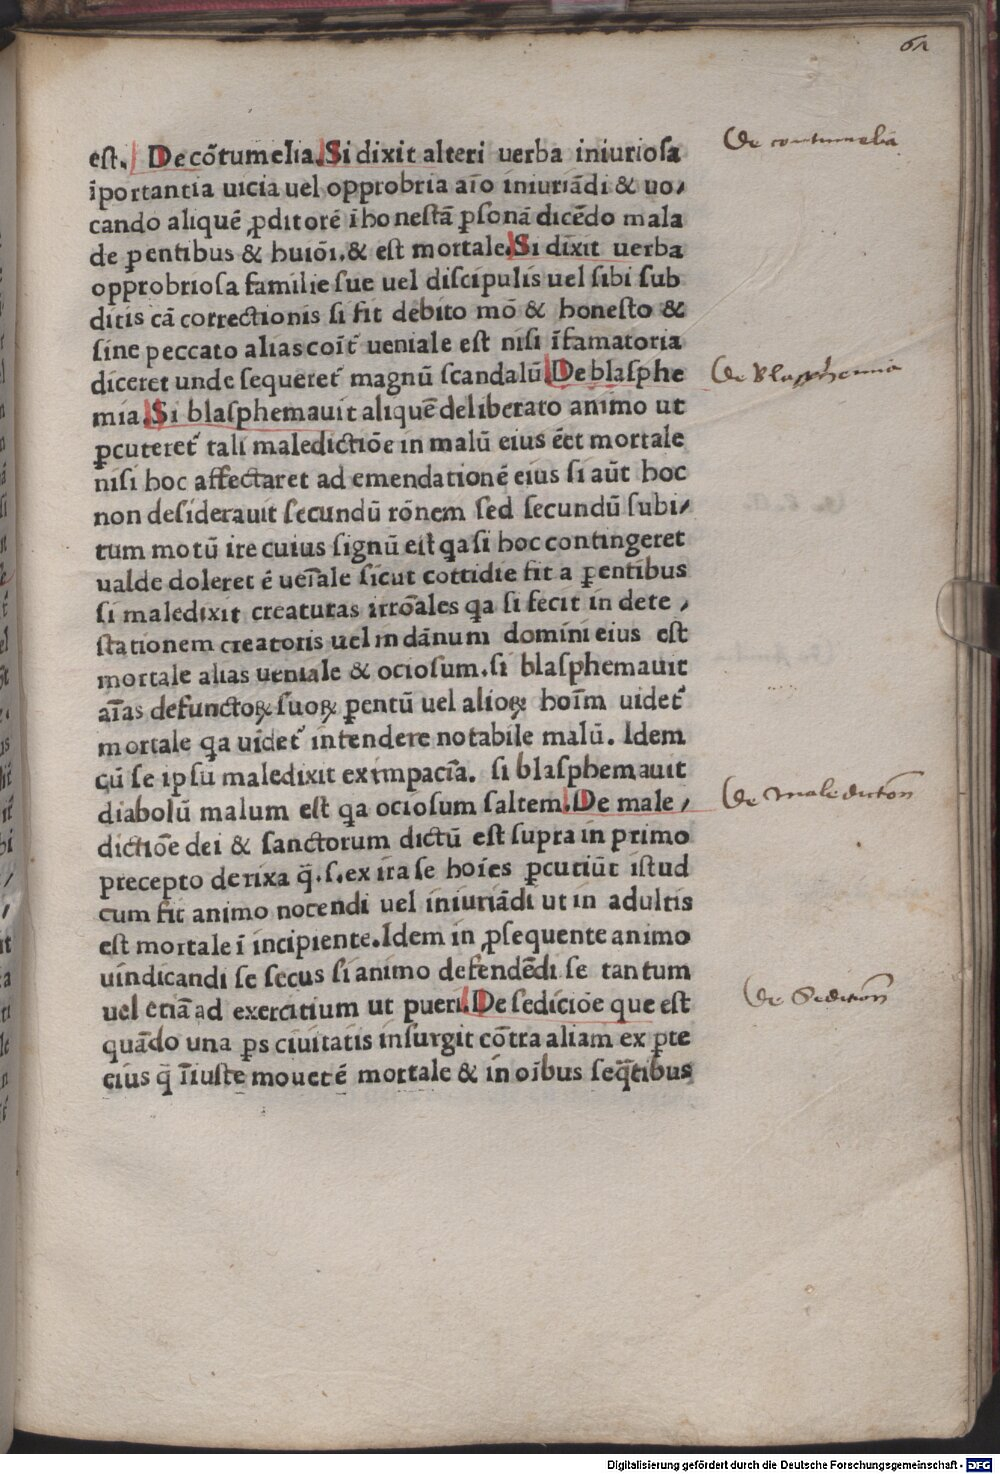 61
est. De cōtumelia. Si dixit alteri uerba iniuriosa
īportantia uicia uel opprobria aīo iniuriādi & uo/
cando aliquē ꝓditorē īhonestā ꝑsonā dicēdo mala
de ꝑentibus & huiōi. & est mortale. Si dixit uerba
opprobriosa familie sue uel discipulis uel sibi sub
ditis cā correctionis si fit debito mō & honesto &
sine peccato alias coīt᷑ ueniale est nisi īfamatoria
diceret unde sequeret᷑ magnū scandalū. De blasphe
mia. Si blasphemauit aliquē deliberato animo ut
ꝑcuteret᷑ tali maledictiōe in malū eius eēt mortale
nisi hoc affectaret ad emendationē eius si aūt hoc
non desiderauit secundū rōnem sed secundū subi/
tum motū ire cuius signū est qa si hoc contingeret
ualde doleret ē ueīale sicut cottidie fit a ꝑentibus
si maledixit creaturas irrōales qa si fecit in dete /
stationem creatoris uel in dānum domini eius est
mortale alias ueniale & ociosum. si blasphemauit
aīas defunctoꝝ suoꝝ ꝑentū uel alioꝝ hoīm uidet᷑
mortale qa uidet᷑ intendere notabile malū. Idem
cū se ipsū maledixit ex impacīa. si blasphemauit
diabolū malum est qa ociosum saltem. De male /
dictiōe dei & sanctorum dictū est supra in primo
precepto de rixa q̄. s. ex ira se hoīes ꝑcutiūt istud
cum fit animo nocendi uel iniuriādi ut in adultis
est mortale ī incipiente. Idem in ꝓsequente animo
uindicandi se secus si animo defendēdi se tantum
uel etiā ad exercitium ut pueri. De sediciōe que est
quādo una ꝑs ciuitatis insurgit cōtra aliam ex ꝑte
eius q̄ īiuste mouet ē mortale & in oībus seq̄tibus
De contumelia
De Blasphemia
De Maledictōn
De Seditōn
Digitalisierung gefördert durch die Deutsche Forschungsgemeinschaft - DFG